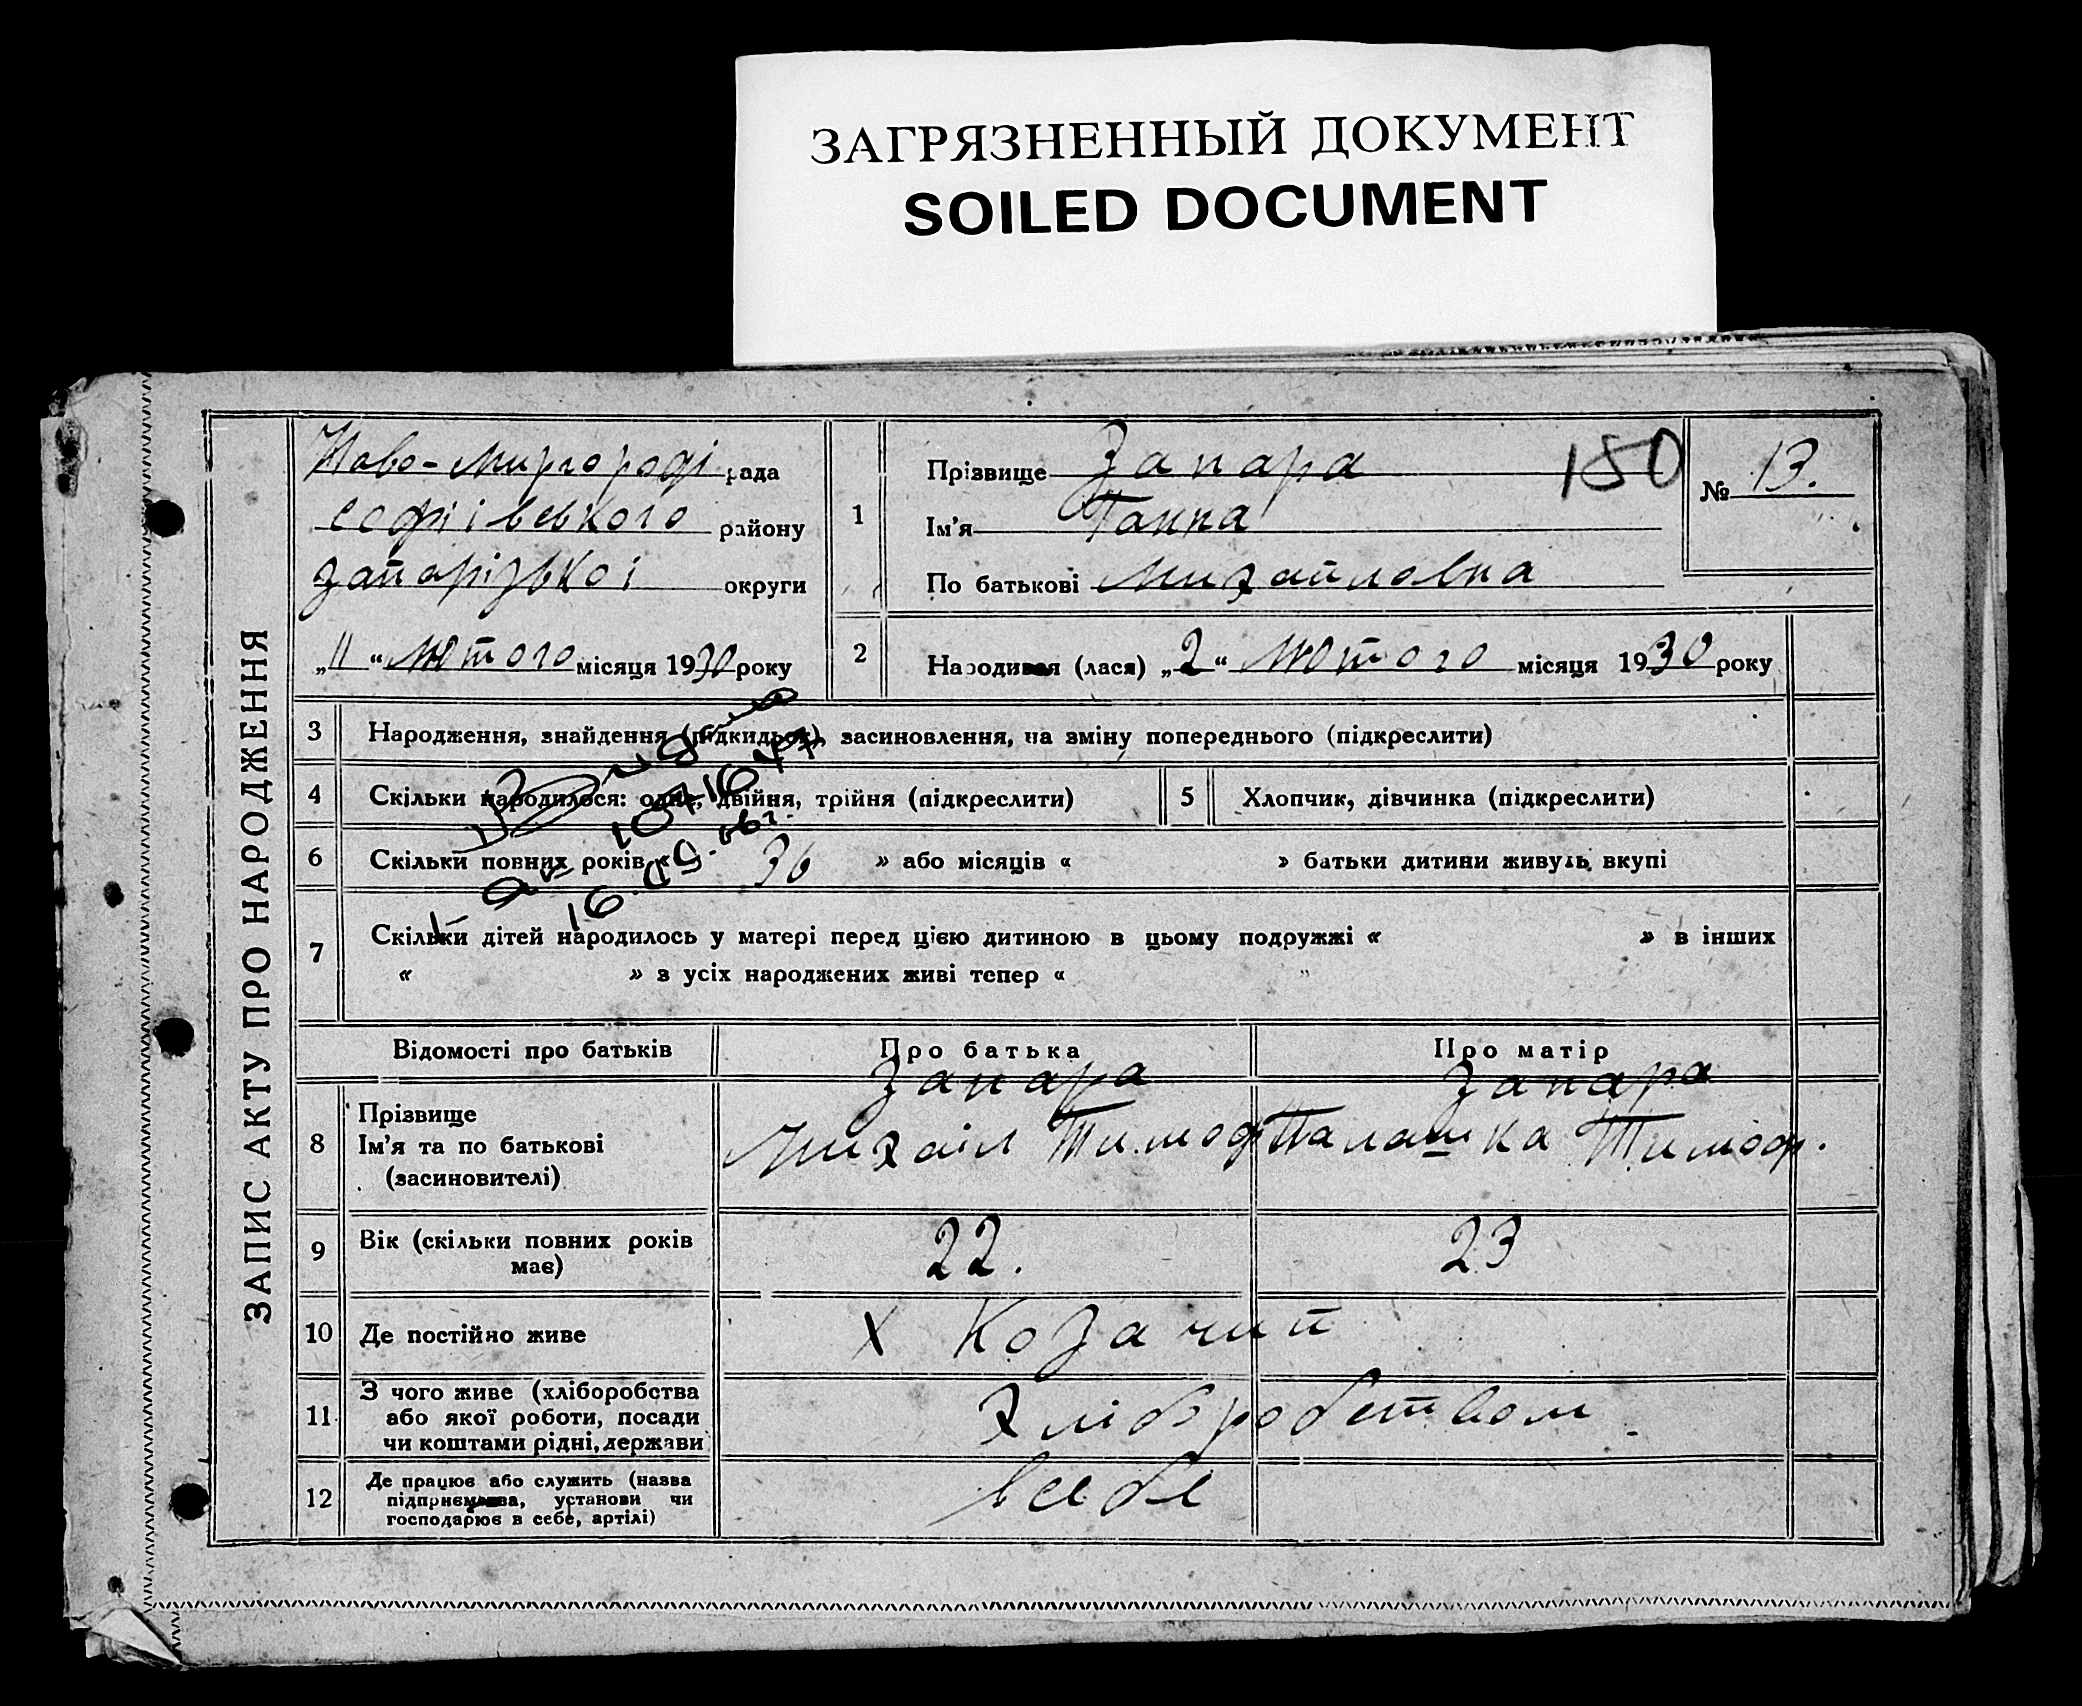 ЗАГРЯЗНЕННЫЙ ДОКУМЕНТ
SOILED DOCUMENT
ЗАПИС АКТУ ПРО НАРОДЖЕННЯ
Ново-Миргороді рада
Софіівського району
Запорізької округи
„11“ лютого місяця 1930 року
1
Прізвище Запара
150
Ім'я Ганна
По батькові Михайловна
№ 13.
2
Народився (лася) „2“ лютого місяця 1930 року
3 Народження, знайдення (підкидьок), засиновлення, на зміну попереднього (підкреслити)
4 Скільки народилося: одне, двійня, трійня (підкреслити)
5 Хлопчик, дівчинка (підкреслити)
6 Скільки повних років « 36 » або місяців « » батьки дитини живуть вкупі
7 Скільки дітей народилось у матері перед цією дитиною в цьому подружжі « » в інших
« » з усіх народжених живі тепер « "
Відомості про батьків
Про батька
Про матір
8 Прізвище
Ім'я та по батькові
(засиновителі)
Запара
Михаіл Тимоф
Запара
Палашка Тимоф.
9 Вік (скільки повних років має)
22.
23
10 Де постійно живе
х Козачий
11 З чого живе (хліборобства
або якої роботи, посади
чи коштами рідні, держави
Хліборобством.
12 Де працює або служить (назва
підприємства, установи чи
господарює в себе, артілі)
в себе